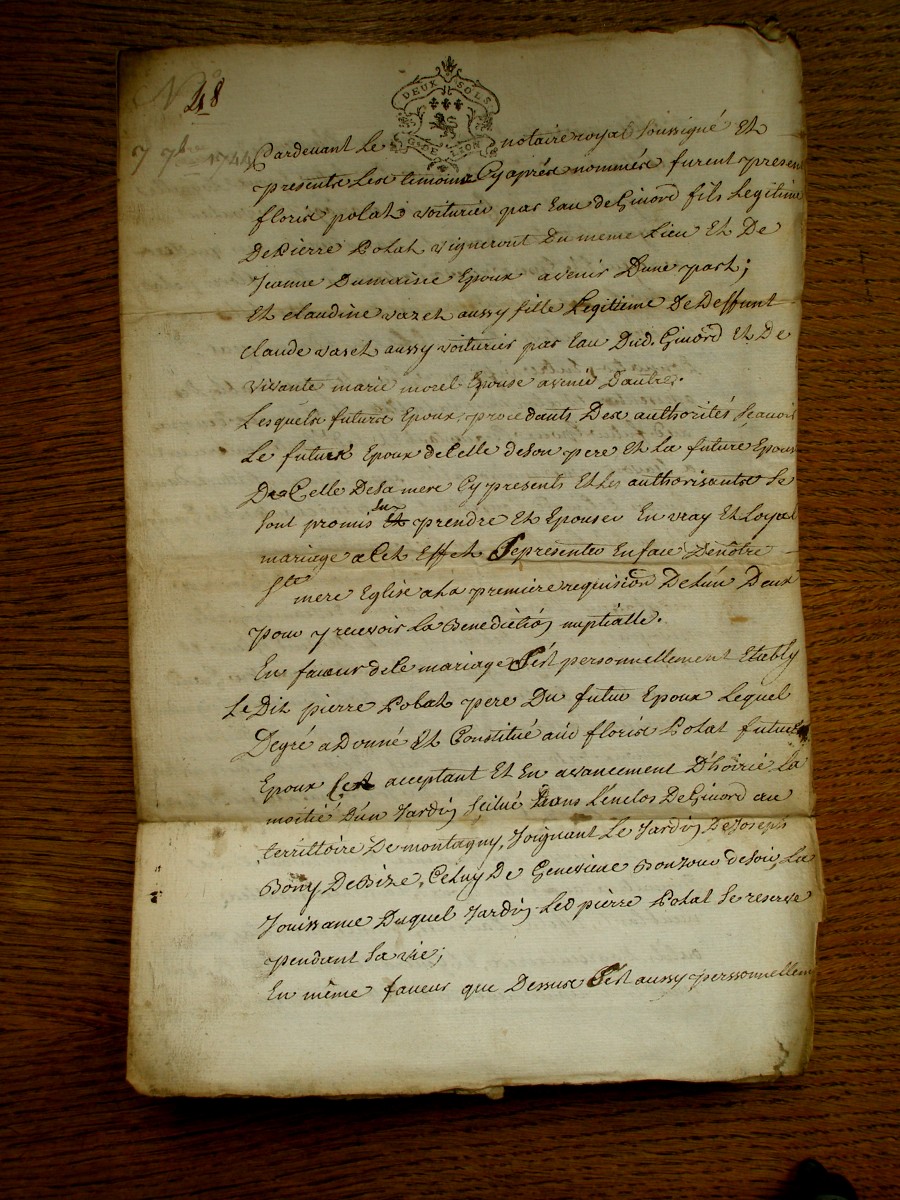 N° 48
DEUX SOLS
G. DE LION
7 7bre 1744
Pardevant Le notaire royal soussigné Et
presents Les temoins Cy aprés nommés furent presens
floris polat voiturier par Eau de Givord fils Legitime
De Pierre Polat vigneront Du meme Lieu Et De
Jeanne Dumaise Epoux avenir Dune part;
Et claudine vazet aussy fille Legitime De Deffunt
claude vaset aussy voiturier par Eau Dud. Givord Et De
vivante marie morel Epouse avenir Dautre.
Lesquels futurs Epoux procedants Des authorités sçavoir
Le futur Epoux de Celle de son pere Et La future Epouse
De Celle De Sa mere Cy presents Et Les authorisants Se
Sont promis Et prendre Et Epouser En vray Et Loyal
mariage a Cet Effet Se presenter En face De nôtre
Ste mere Eglise a La premiere requision De Lun Deux
pour y recevoir La Benediction nuptialle.
En faveur de Ce mariage S'est personnellement Etably
Le Dit pierre Polat pere Du futur Epoux Lequel
De gré a Donné Et Constitué aud floris Polat futur
Epoux acceptant Et En avancement D'hoirie La
moitié D'un Jardin Scitué Dans L'enclos De Givord au
territtoire De montagny, Joignant Le Jardin De Joseph
Bony De Bize, Celuy De Genevieve Bonzou de soir, La
Jouissance Duquel Jardin Led pierre Polat Se reserve
pendant Sa vie;
En même faveur que Dessus S'est aussy perssonnellem